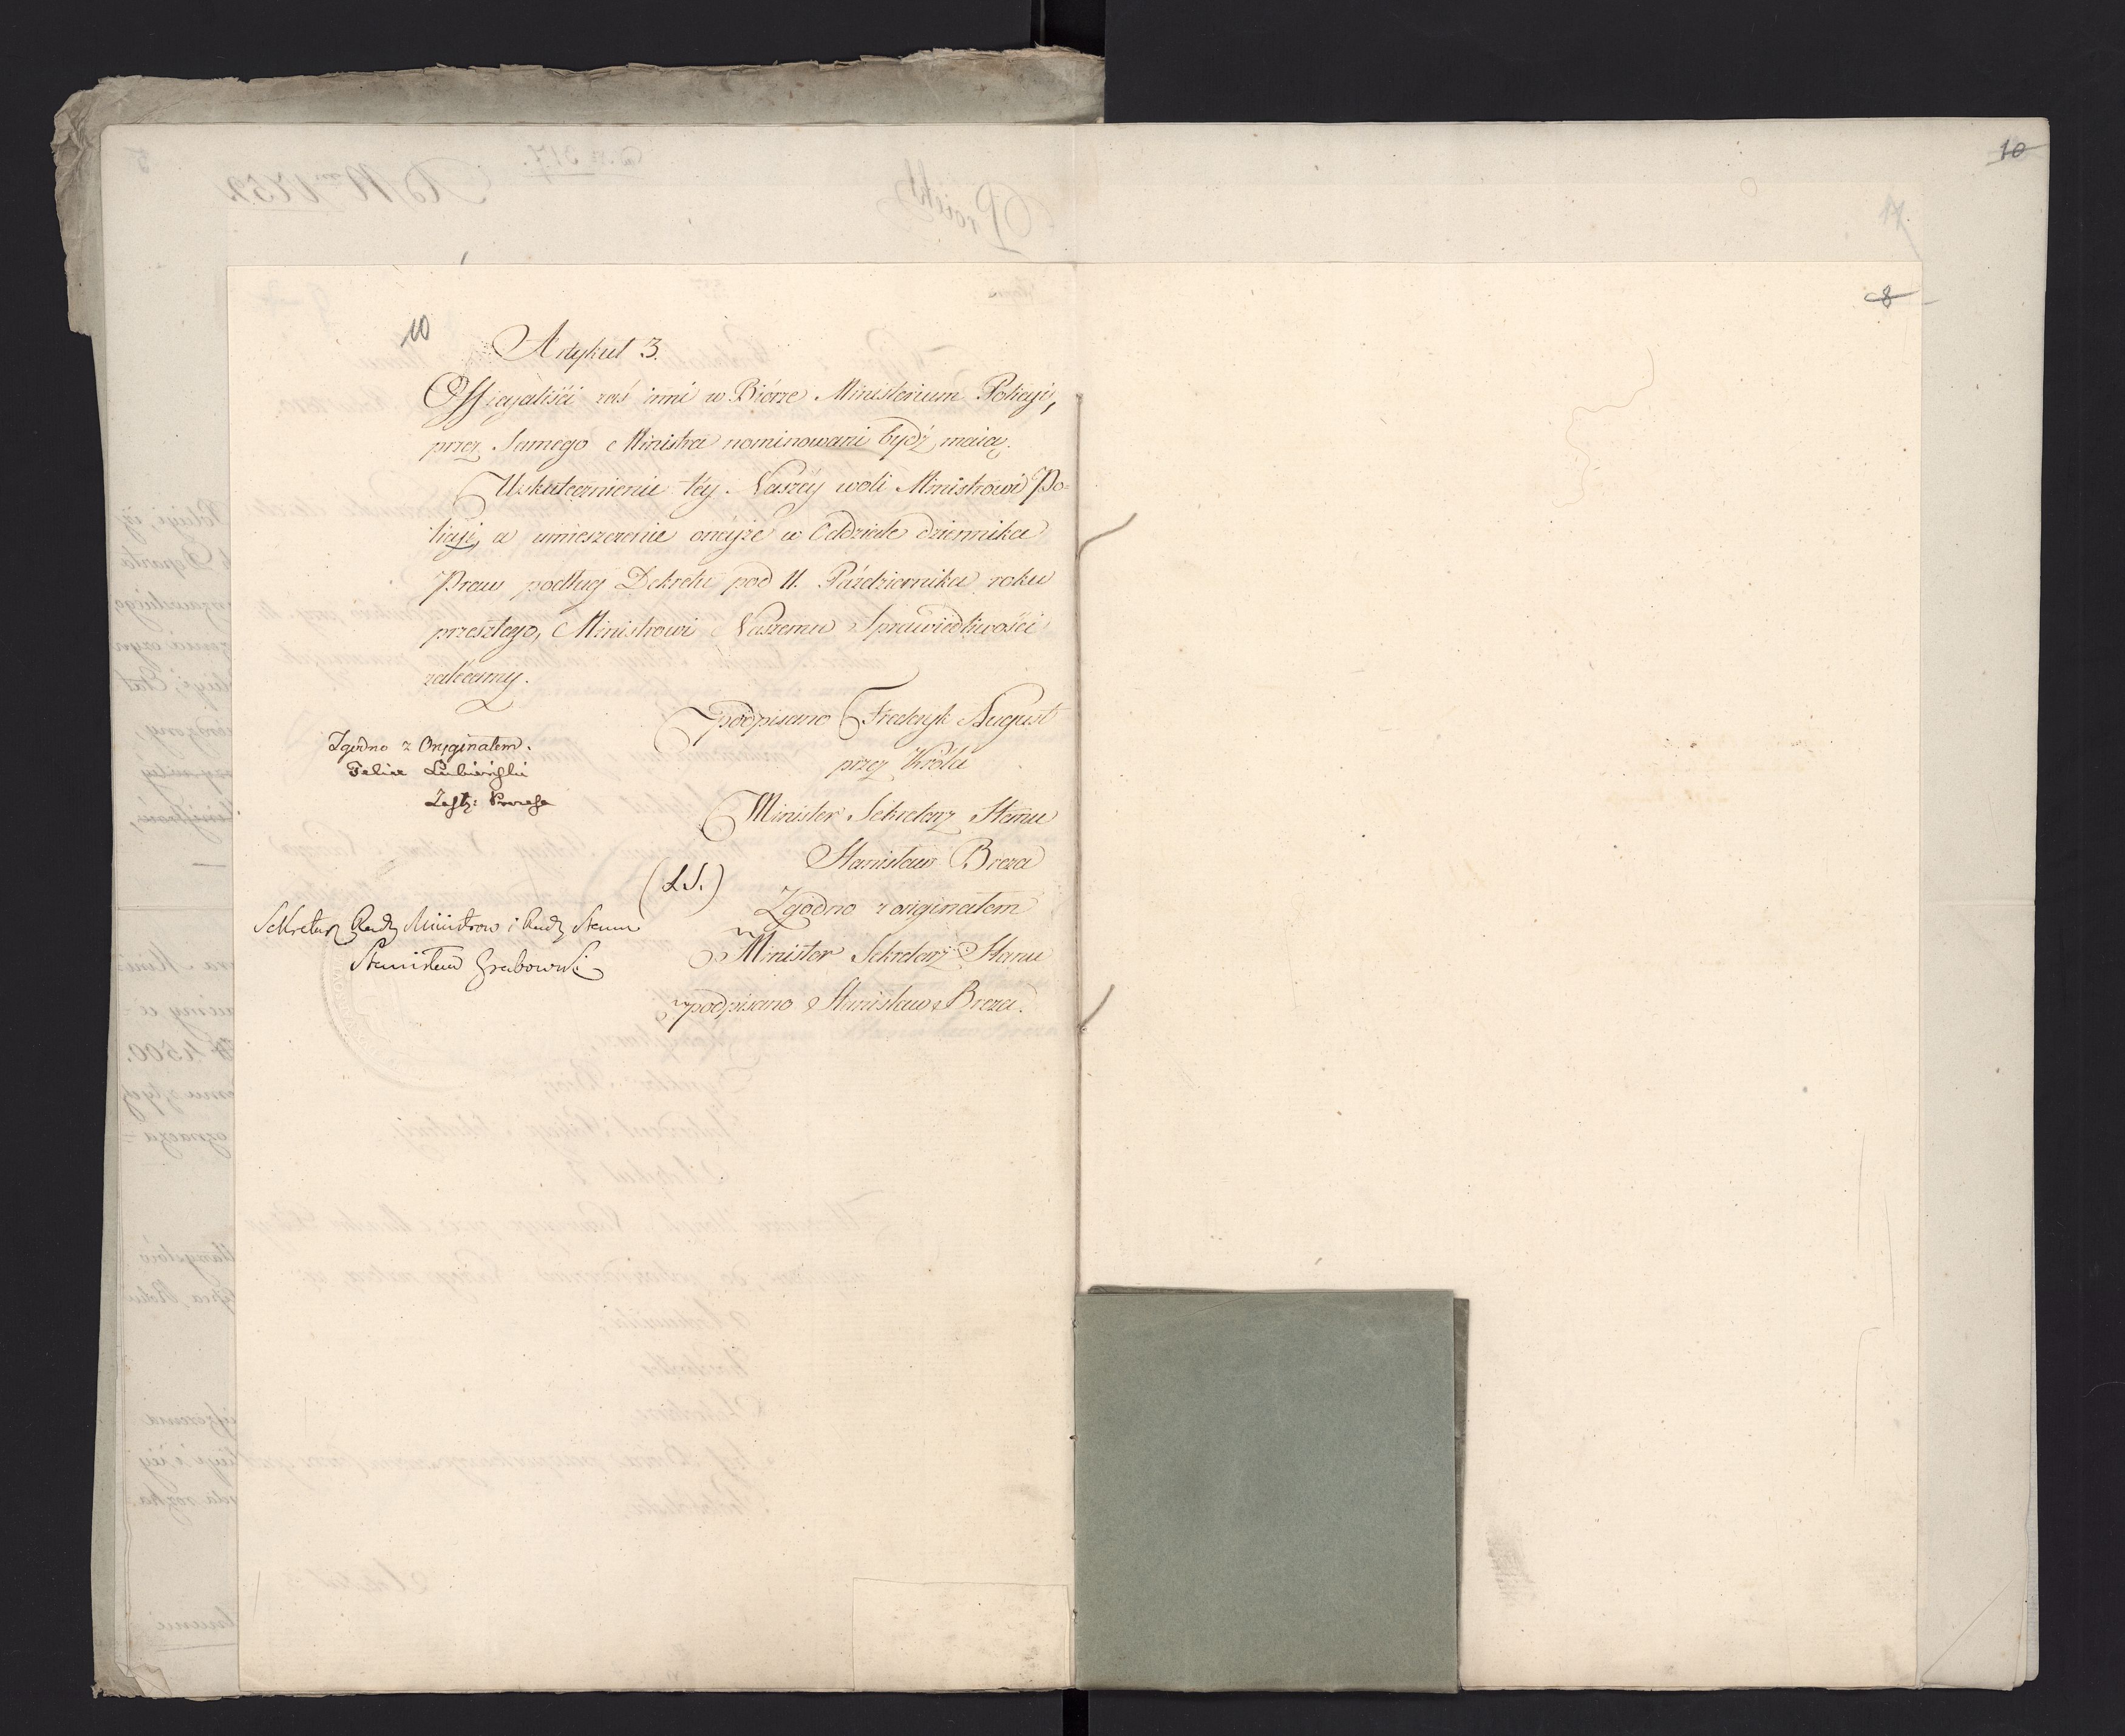 10
Artykuł 3.
Officyaliści zaś inni w Biórze Ministerium Policyi,
przez Samego Ministra nominowani bydź maią.
Uskutecznienie téy Naszéy woli Ministrowi Po=
licyi, a umieszczenie onéyże w Oddziale dziennika
Praw podług Dekretu pod 11. Października roku
przeszłego, Ministrowi Naszemu Sprawiedliwości
zalécamy.
podpisano Frederyk August
przez Króla
Minister Sekretarz Stanu
Stanisław Breza
(L.S.)
Zgodno z originałem
Minister Sekretarz Stanu
podpisano Stanisław Breza.
Zgodno z Oryginałem.
Felix Łubieński
Zastę: Prezesa
Sekretarz Rady Ministrow i Rady Stanu
Stanisław Grabowski
10
17
8